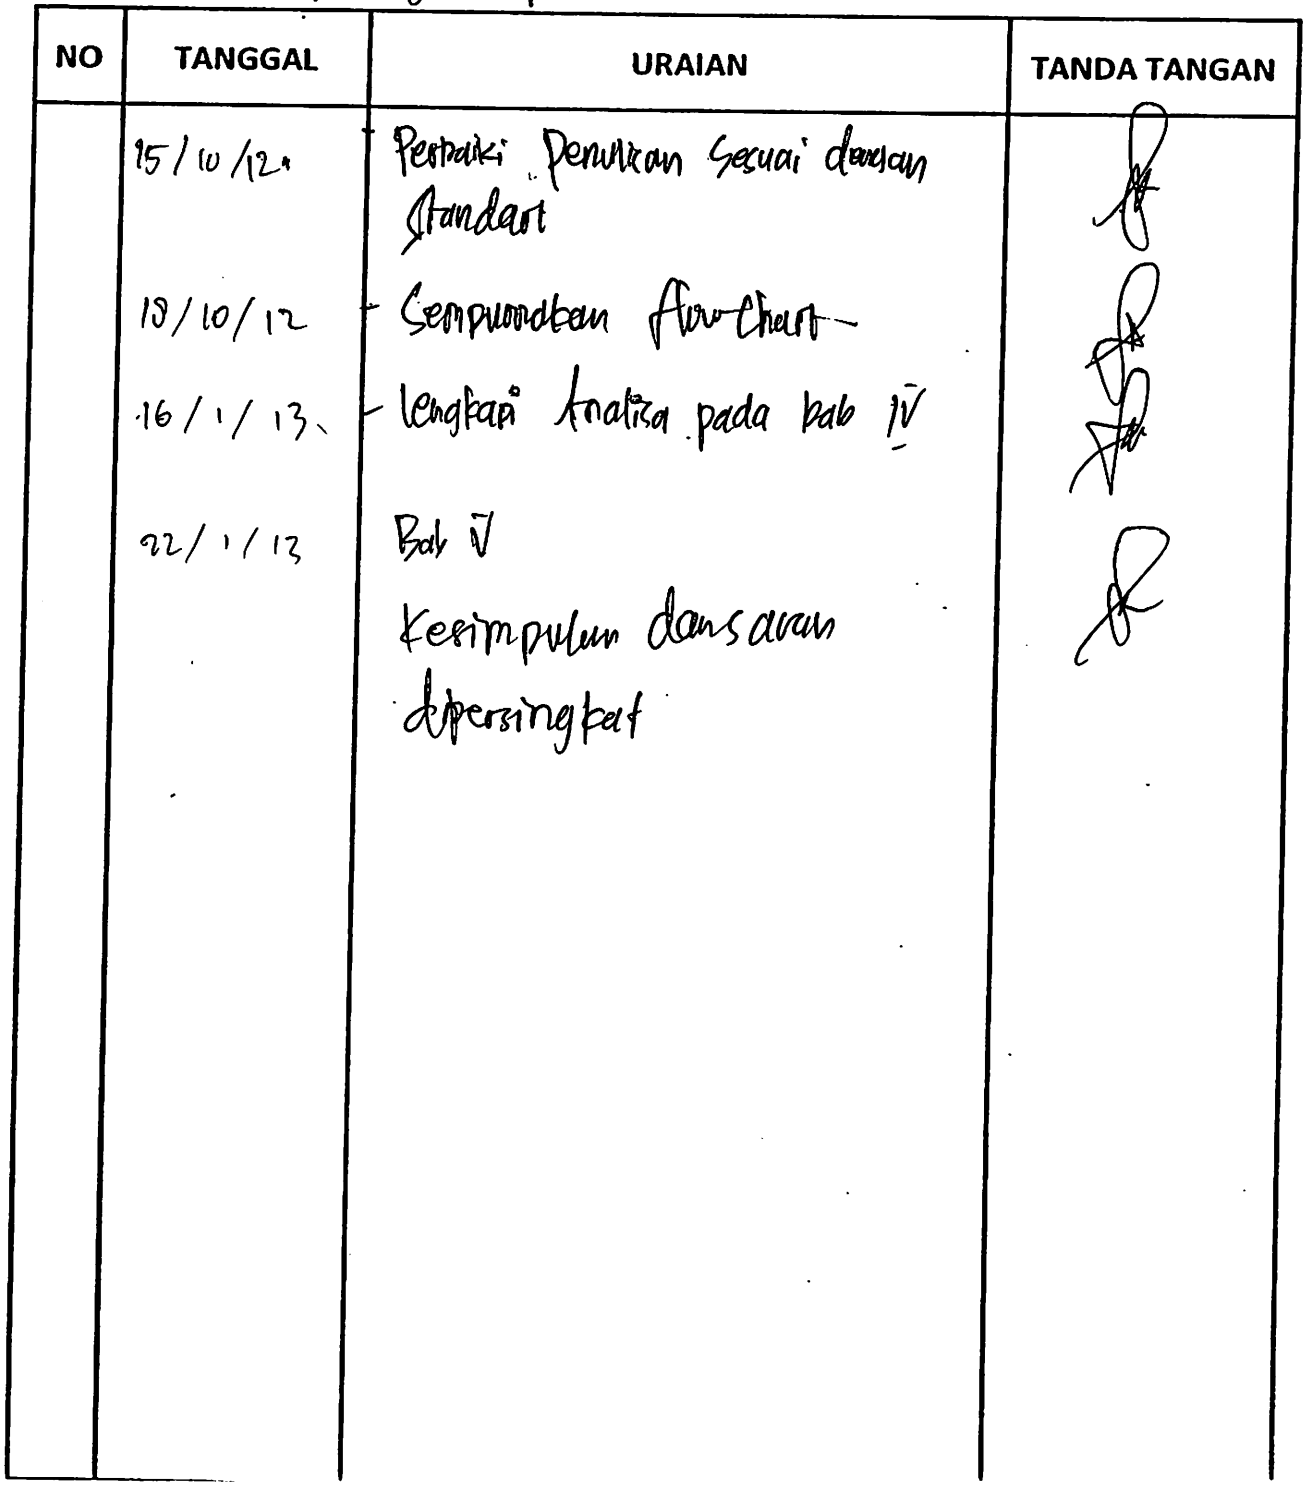 NO TANGGAL URAIAN TANDA TANGAN
15/10/12 - Perbaiki penulisan sesuai dengan
standart
18/10/12 - Sempurnakan flow chart
16/1/13 - lengkapi Analisa pada bab IV
22/1/13 Bab V
Kesimpulan dan saran
dipersingkat